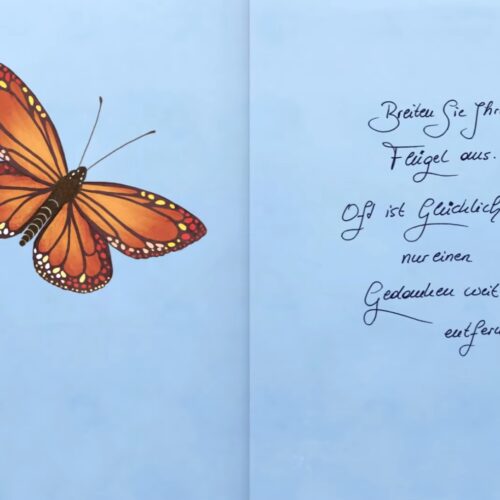 Breiten Sie Ihr
Flügel aus.
Oft ist Glücklich
nur einen
Gedanken weit
entfern